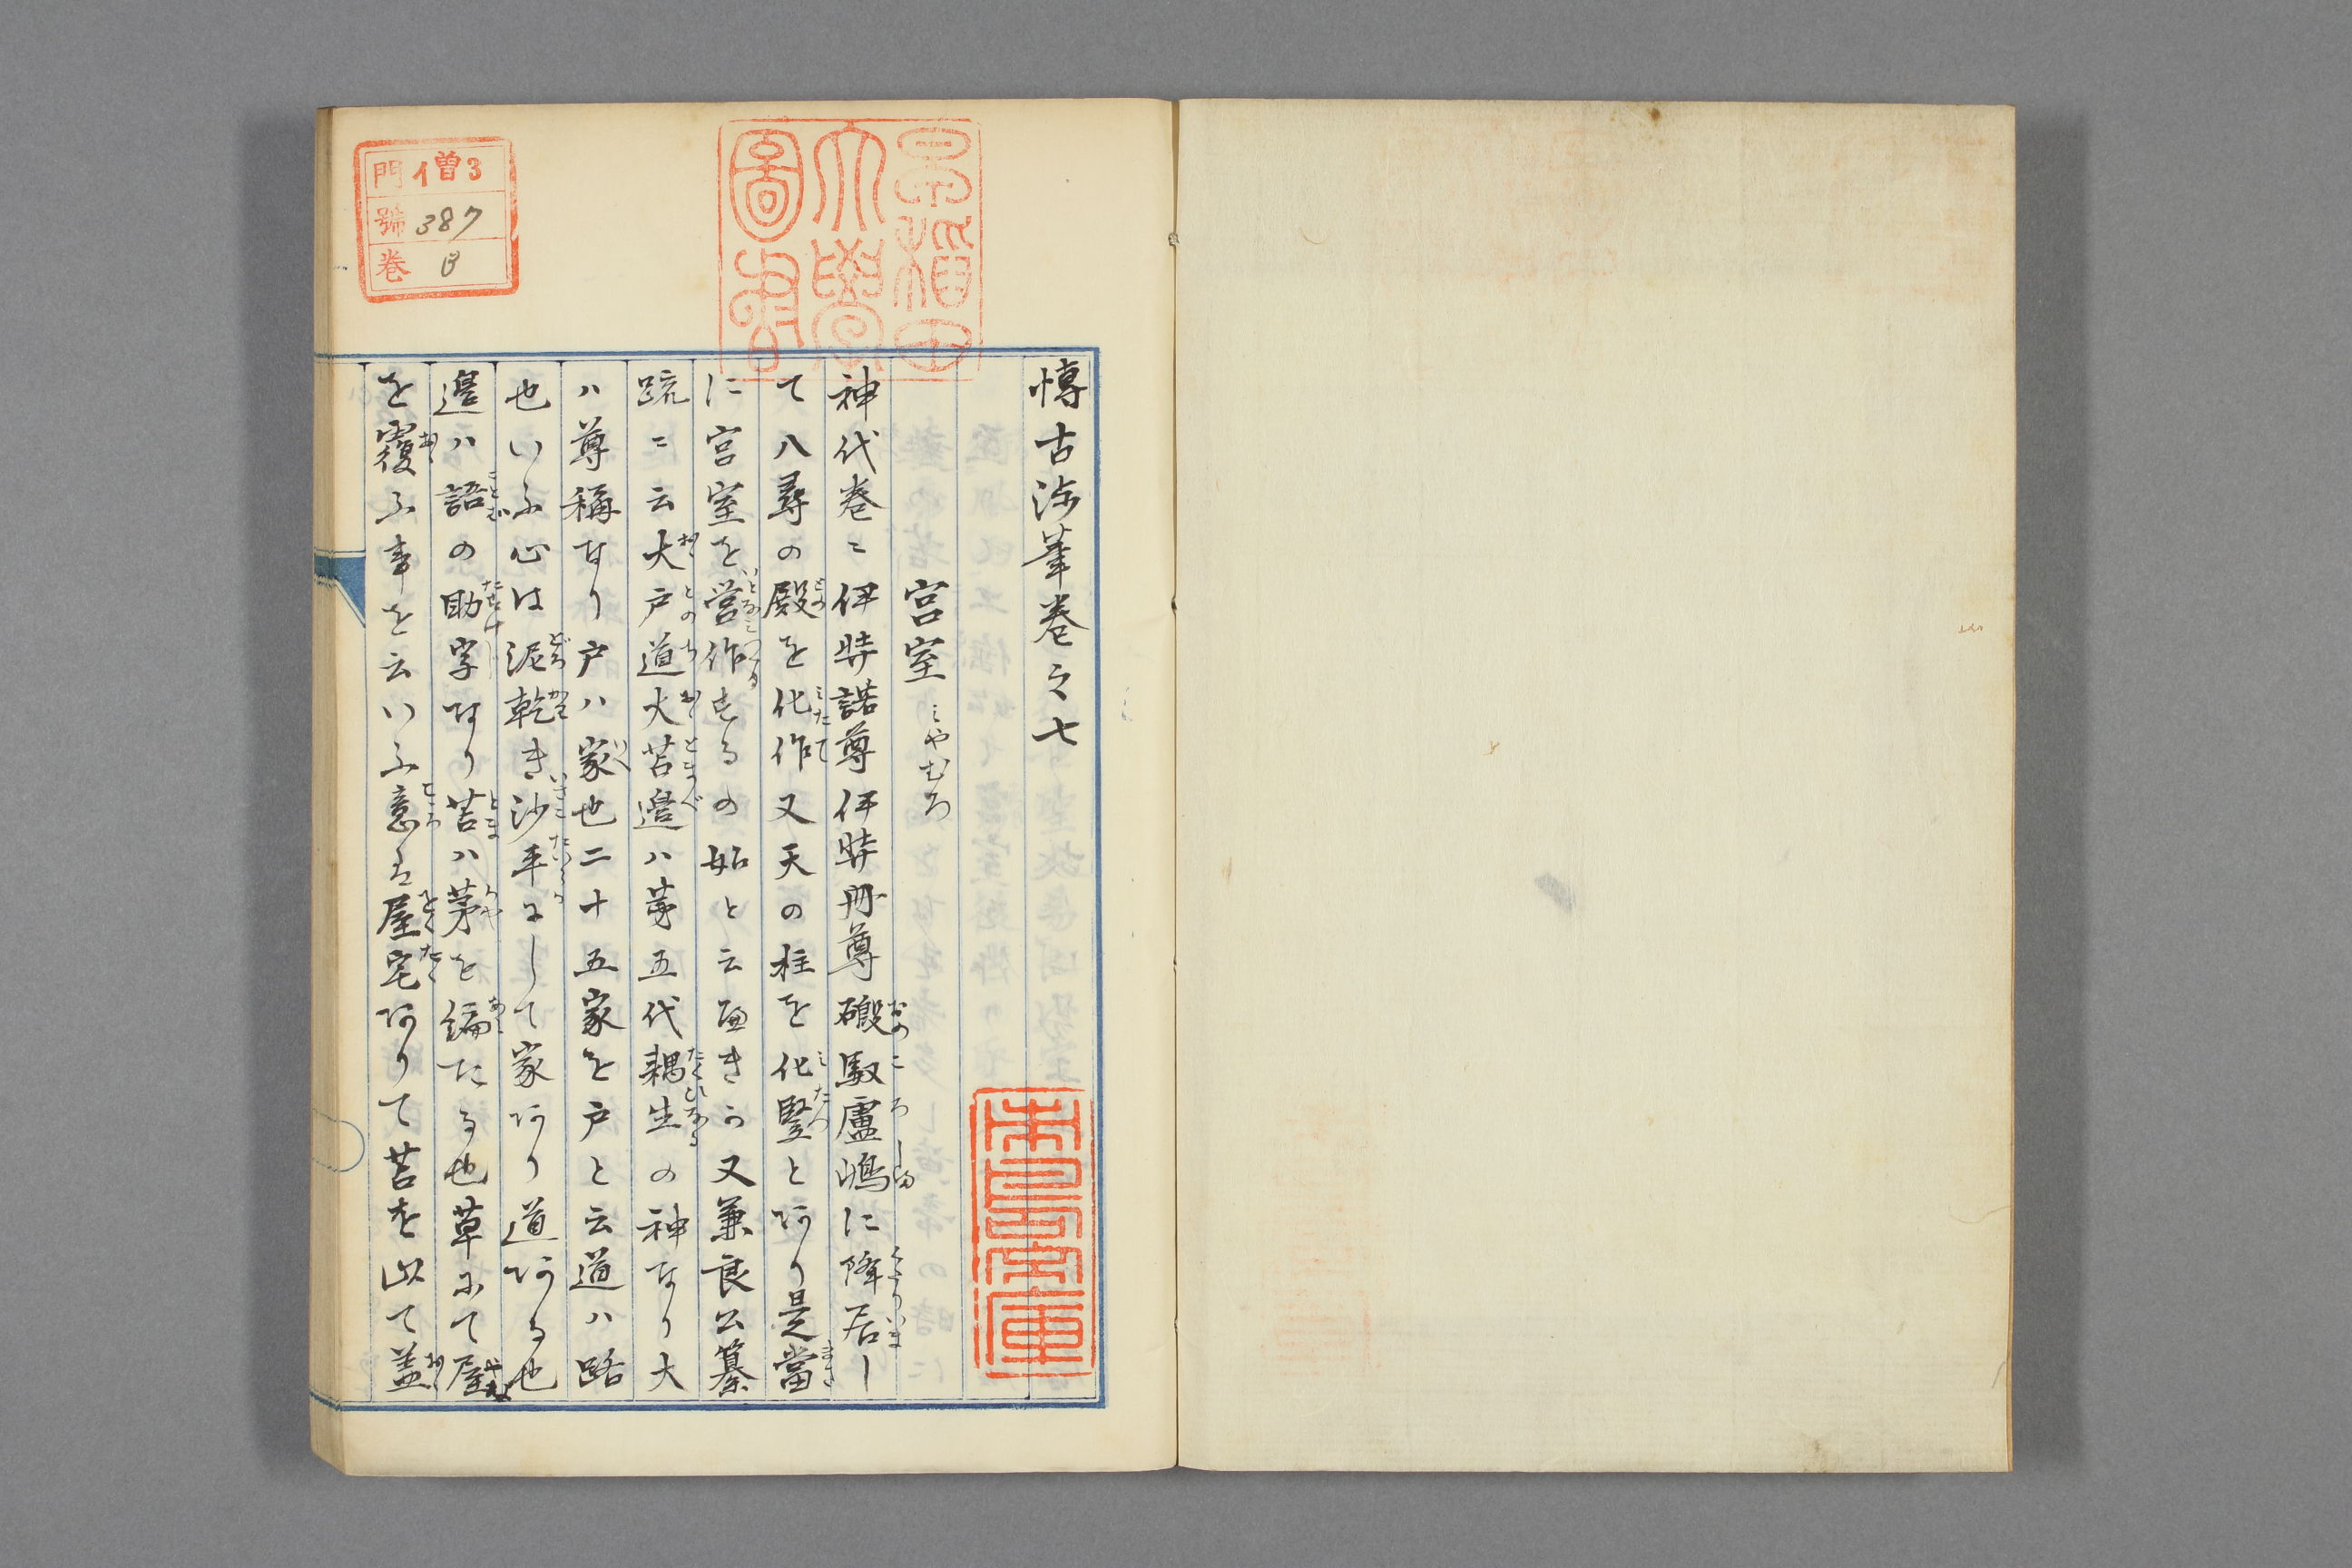 慱古渉筆巻之七
宮室 ミやむろ
神代巻ニ伊弉諾尊伊弉冊尊磤馭盧嶋に降居し
て八尋の殿を化作又天の柱を化竪と有り是當
に宮室を営作するの始と云
べきか又兼良公纂
疏ニ云大戸道大苫邊ハ第五代耦生の神なり大
ハ尊稱なり戸ハ家也二十五家を戸と云道ハ路
也いふ心は泥乾き沙平にして家あり道ある也
邉ハ語の助字なり苫ハ茅を編たる也草にて屋
を覆ふ事を云いふ意は屋宅ありて苫を以て蓋
門 僧3
號 387
巻 B
早稲田大學圖書